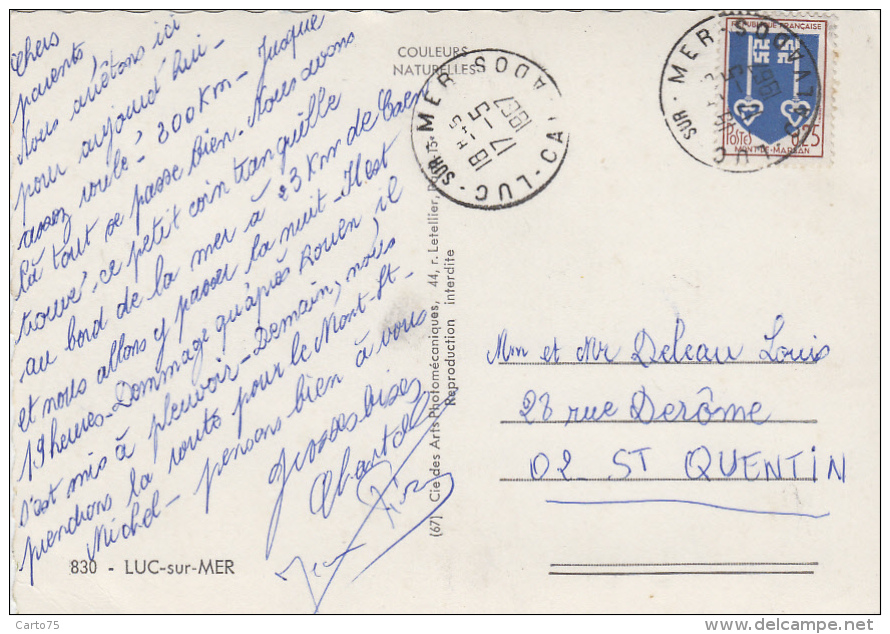 Chers
parents,
Nous arrêtons ici
pour aujourd'hui -
assez roulé : 300 Km - Jusque
là tout se passe bien. Nous avons
trouvé ce petit coin tranquille
au bord de la mer à 23 Km de Caen
et nous allons y passer la nuit - Il est
19 heures - Dommage qu'après Rouen, il
s'est mis à pleuvoir - Demain, nous
prendrons la route pour le Mont-St-
Michel - pensons bien à vous
Grosses bises
Chantal
830 - LUC-sur-MER
COULEURS
NATURELLES
(67) Cie des Arts Photomécaniques, 44, r. Letellier,
Reproduction interdite
LUC-SUR-MER CALVADOS
18 H
17-5
1967
REPUBLIQUE FRANÇAISE
POSTES
0,25
MONT-DE-MARSAN
Mme et Mr Deleau Louis
28 rue Derôme
02 ST QUENTIN
Carto75
www.delcampe.net